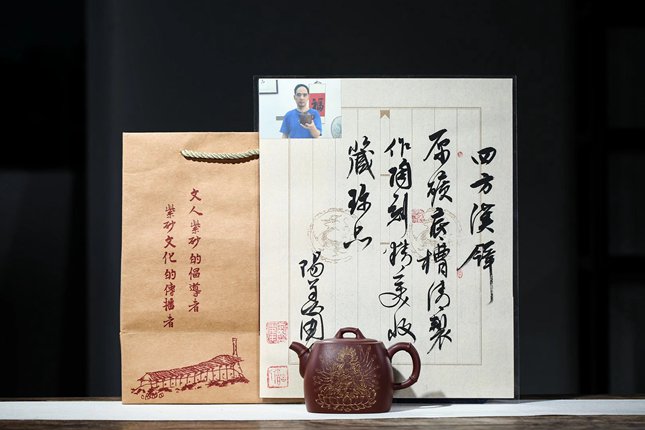 文人紫砂的倡導者
紫砂文化的傳播者
福
四方漢鐸
原礦底槽清製
作陶刻精美收
藏珍品